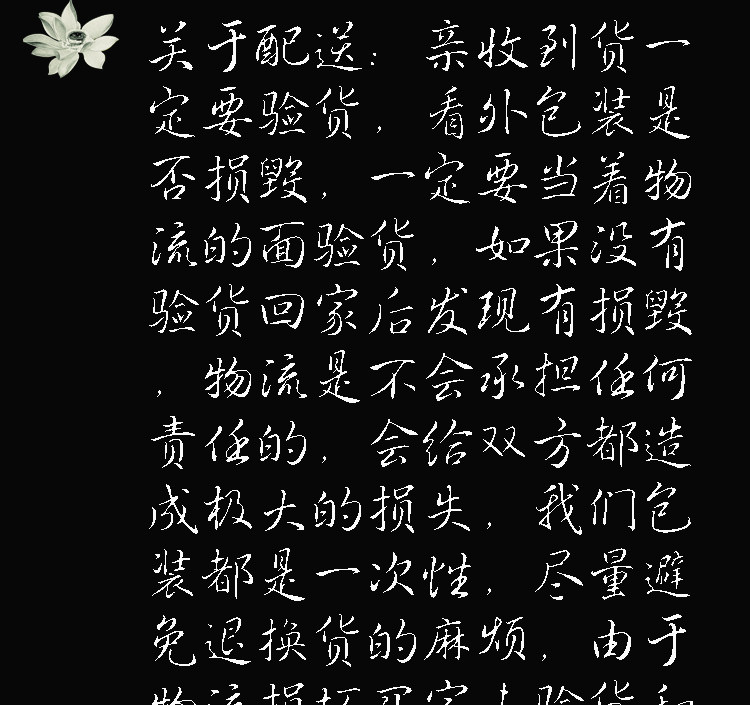 关于配送：亲收到货一
定要验货，看外包装是
否损毁，一定要当着物
流的面验货，如果没有
验货回家后发现有损毁
，物流是不会承担任何
责任的，会给双方都造
成极大的损失，我们包
装都是一次性，尽量避
免退换货的麻烦，由于
物流损坏买家未验货和